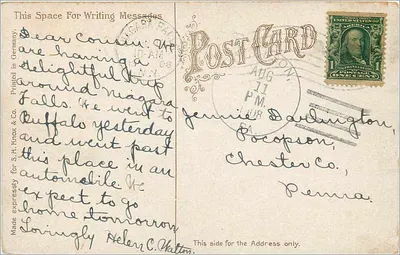 This Space For Writing Messages
Dear Cousin: We
are having a
delightful trip
around Niagara
Falls. We went to
Buffalo yesterday
and went past
this place in an
automobile We
expect to go
home tomorrow
Lovingly Helen C. Walton.
Made expressly for S. H. Knox & Co. Printed in Germany.
POST CARD
AUG
11
P.M.
PA.
1 1
POSTAGE ONE CENT
Jennie Darlington,
Pocopson,
Chester Co.,
Penna.
This side for the Address only.